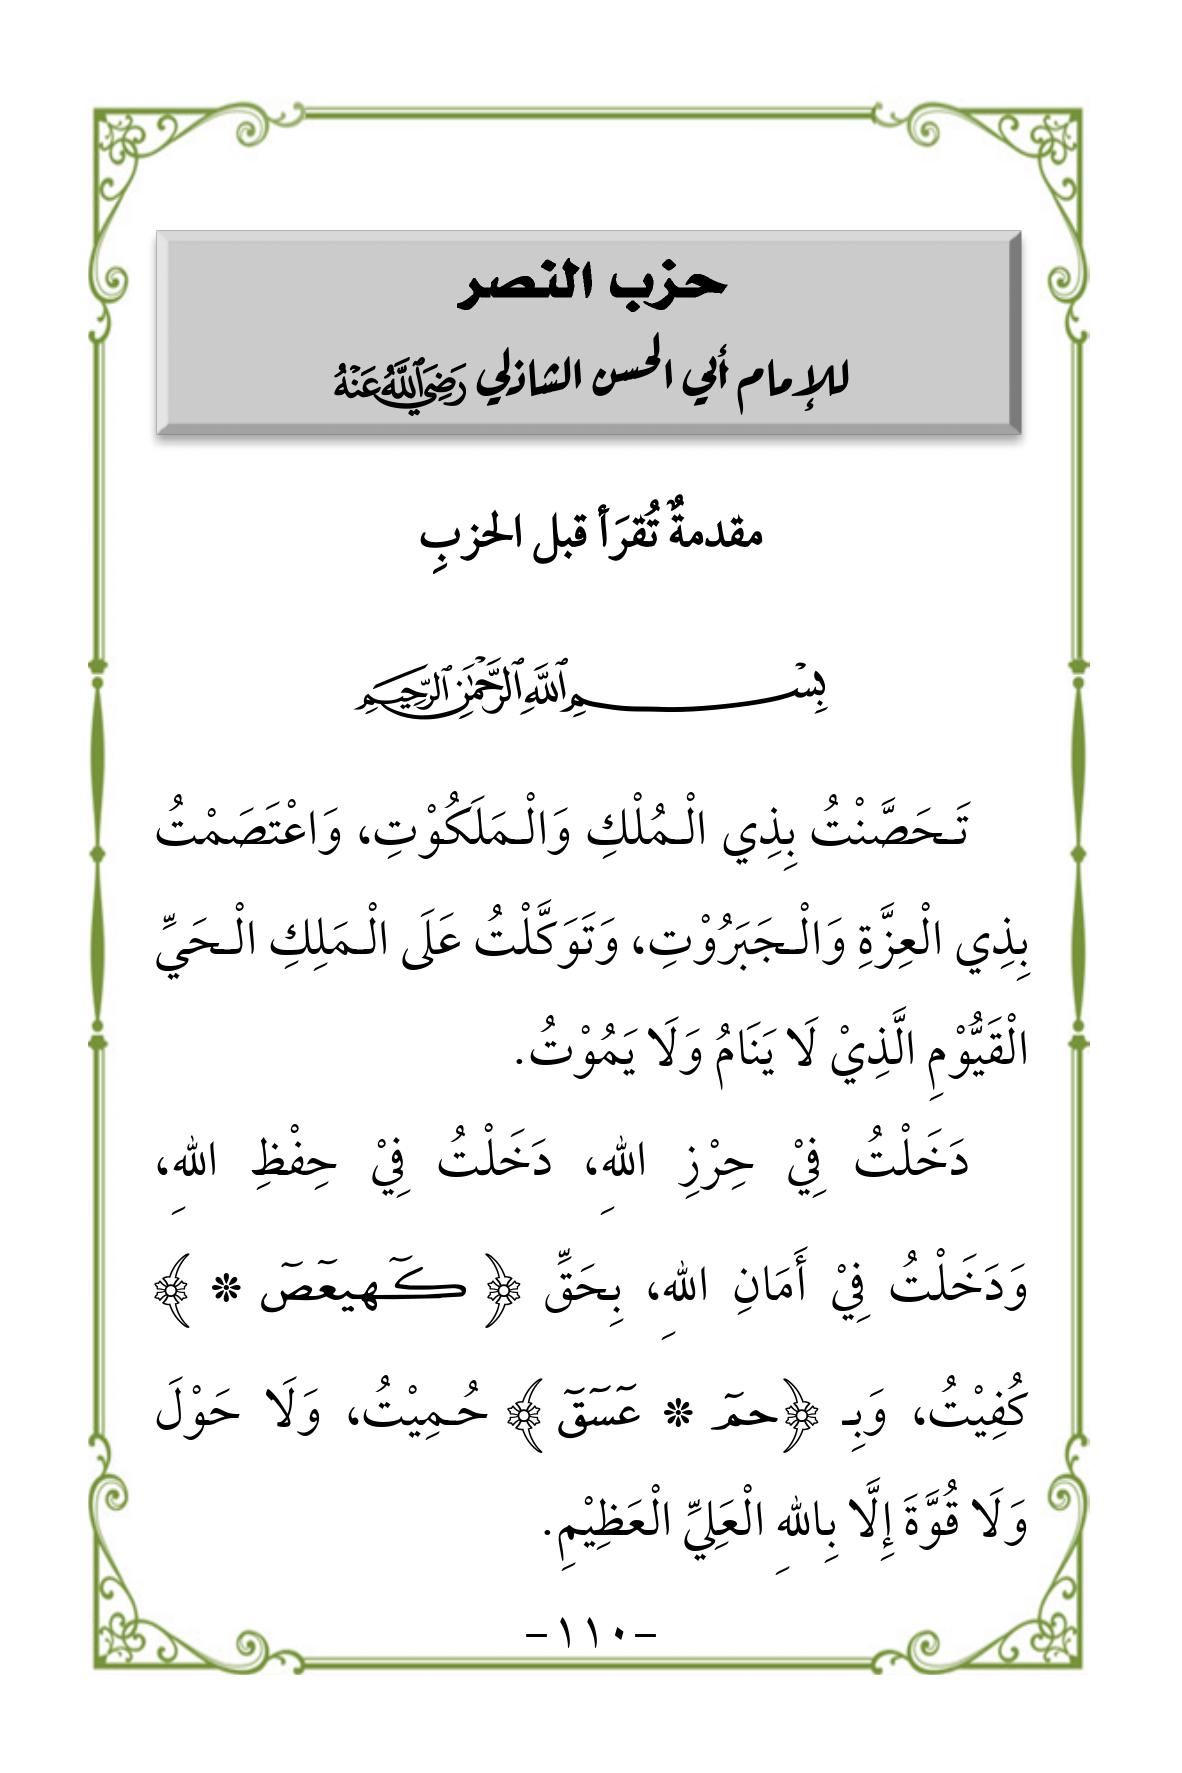 حزب النصر
للإمام أبي الحسن الشاذلي رَضِيَ ٱللَّهُ عَنْهُ
مقدمةٌ تُقرَأ قبل الحزبِ
بِسْمِ ٱللَّهِ ٱلرَّحْمَٰنِ ٱلرَّحِيمِ
تَـحَصَّنْتُ بِذِي الْـمُلْكِ وَالْـمَلَكُوْتِ، وَاعْتَصَمْتُ
بِذِي الْعِزَّةِ وَالْـجَبَرُوْتِ، وَتَوَكَّلْتُ عَلَى الْـمَلِكِ الْـحَيِّ
الْقَيُّوْمِ الَّذِيْ لَا يَنَامُ وَلَا يَمُوْتُ.
دَخَلْتُ فِيْ حِرْزِ اللهِ، دَخَلْتُ فِيْ حِفْظِ اللهِ،
وَدَخَلْتُ فِيْ أَمَانِ اللهِ، بِحَقِّ ﴿ كٓهيعٓصٓ * ﴾
كُفِيْتُ، وَبِـ ﴿حمٓ * عٓسٓقٓ ﴾ حُـمِيْتُ، وَلَا حَوْلَ
وَلَا قُوَّةَ إِلَّا بِاللهِ الْعَلِيِّ الْعَظِيْمِ.
-١١٠-